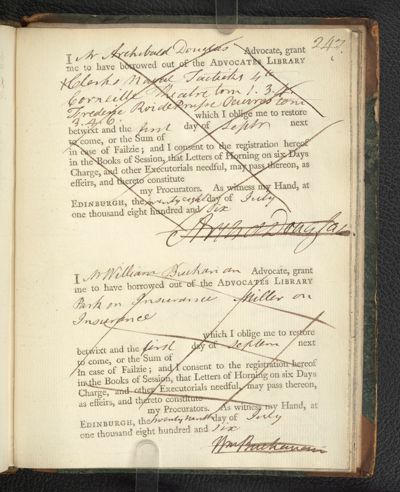 247.
I Mr Archibald Douglas Advocate, grant
me to have borrowed out of the ADVOCATES LIBRARY
Clerks Naval Tacticks 4to
Corneille Theatre tom 1. 3.
Frederic Roi de Prusse Oeuvres tom
3. 4. 6. which I oblige me to restore
betwixt and the first day of Septr next
to come, or the Sum of
in case of Failzie; and I consent to the registration hereof
in the Books of Session, that Letters of Horning on six Days
Charge, and other Executorials needful, may pass thereon, as
effeirs, and thereto constitute
my Procurators. As witness my Hand, at
EDINBURGH, the twenty eight day of July
one thousand eight hundred and six
Archd Douglas
I Mr William Buchanan Advocate, grant
me to have borrowed out of the ADVOCATES LIBRARY
Park on Insurance Miller on
Insurance
which I oblige me to restore
betwixt and the first day of Septem next
to come, or the Sum of
in case of Failzie; and I consent to the registration hereof
in the Books of Session, that Letters of Horning on six Days
Charge, and other Executorials needful, may pass thereon,
as effeirs, and thereto constitute
my Procurators. As witness my Hand, at
EDINBURGH, the twenty ninth day of July
one thousand eight hundred and six
Wm Buchanan